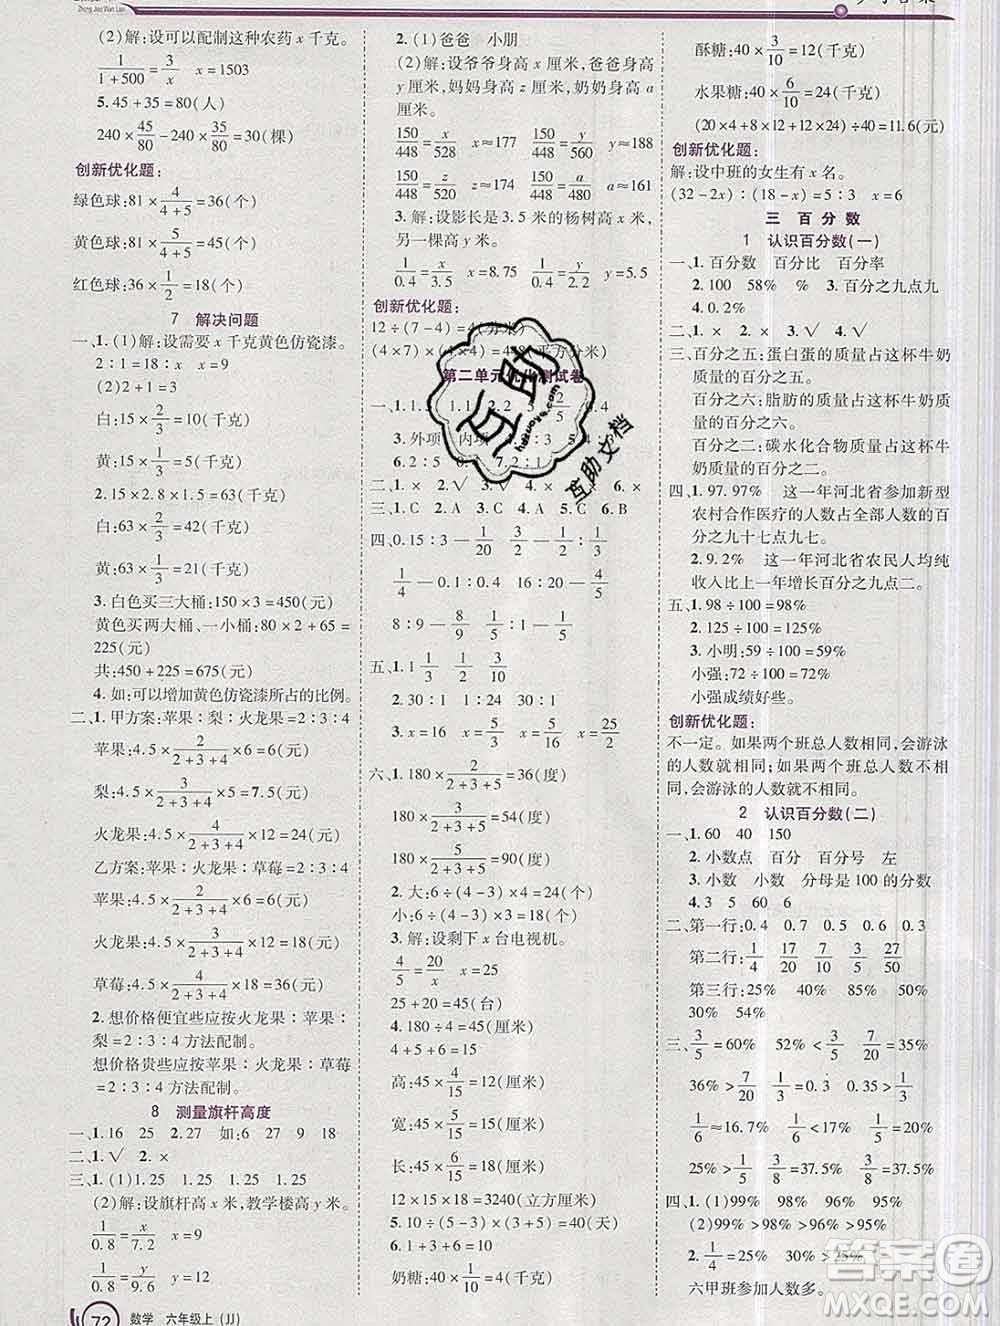 Zhong Jiao Wan Lan
(2)解:设可以配制这种农药 x 千克。
1/(1+500)=3/x x=1503
5. 45+35=80(人)
240×45/80-240×35/80=30(棵)
创新优化题:
绿色球:81×4/(4+5)=36(个)
黄色球:81×5/(4+5)=45(个)
红色球:36×1/2=18(个)
7 解决问题
一、1. (1)解:设需要 x 千克黄色仿瓷漆。
2∶1=18∶x x=9
(2)1+2=3
白:15×2/3=10(千克)
黄:15×1/3=5(千克)
2. 15×2.8×1.5=63(千克)
白:63×2/3=42(千克)
黄:63×1/3=21(千克)
3. 白色买三大桶:150×3=450(元)
黄色买两大桶、一小桶:80×2+65=
225(元)
共:450+225=675(元)
4. 如:可以增加黄色仿瓷漆所占的比例。
二、1. 甲方案:苹果∶梨∶火龙果=2∶3∶4
苹果:4.5×2/(2+3+4)×6=6(元)
梨:4.5×3/(2+3+4)×5=7.5(元)
火龙果:4.5×4/(2+3+4)×12=24(元)
乙方案:苹果∶火龙果∶草莓=2∶3∶4
苹果:4.5×2/(2+3+4)×6=6(元)
火龙果:4.5×3/(2+3+4)×12=18(元)
草莓:4.5×4/(2+3+4)×15=30(元)
2. 想价格便宜些应按火龙果∶苹果∶
梨=2∶3∶4 方法配制。
想价格贵些应按苹果∶火龙果∶草莓
=2∶3∶4 方法配制。
8 测量旗杆高度
一、1. 16 25 2. 27 如:6 27 9 18
二、1. √ 2. ×
三、1. (1)1.25 1.25 1.25
(2)解:设旗杆高 x 米,教学楼高 y 米。
1/0.8=x/7.2 x=9
1/0.8=y/9.6 y=12
2. (1)爸爸 小朋
(2)解:设爷爷身高 x 厘米,爸爸身高
y 厘米,妈妈身高 z 厘米,奶奶身高 a
厘米。
150/448=x/528 x≈177 150/448=y/560 y≈188
150/448=z/520 z≈174 150/448=a/500 a≈167
3. 解:设影长是 3.5 米的杨树高 x 米,
另一棵树高 y 米。
1/0.4=x/3.5 x=8.75 1/0.4=y/2.2 y=5.5
创新优化题:
12÷(7-4)=4(分米)
(4×7)×(4×4)=448(平方分米)
第二单元优化测试卷
3. 外项 内项
二、1. × 2. √
三、1. C 2. A 3. C 4. A 5. C 6. B
四、0.15∶3—1/20 3/2—1/2∶1/3
1/4—0.1∶0.4 16—4/5∶1/20
8∶9—8/9 1/8—1/9
五、1. 1/3 1/3 3/10
2. 30∶1 10∶1
3. x=16 x=5/3 x=5/16 x=25/2
六、1. 180×2/(2+3+5)=36(度)
180×3/(2+3+5)=54(度)
180×5/(2+3+5)=90(度)
2. 大:6÷(4-3)×4=24(个)
小:6÷(4-3)×3=18(个)
3. 解:设剩下 x 台电视机。
4/5=20/x x=25
25+20=45(台)
4. 180÷4=45(厘米)
4+5+6=15
高:45×4/15=12(厘米)
宽:45×5/15=15(厘米)
长:45×6/15=18(厘米)
12×15×18=3240(立方厘米)
5. 10÷(9/12-6/12)=40(天)
6. 1+3+6=10
奶糖:40×1/10=4(千克)
酥糖:40×3/10=12(千克)
水果糖:40×6/10=24(千克)
(20×4+8×12+12×24)÷40=11.6(元)
创新优化题:
解:设中班的女生有 x 名。
(32-2x)∶(18-x)=5∶3 x=6
三 百分数
1 认识百分数(一)
一、1. 百分数 百分比 百分率
2. 100 58% % 3. 百分之九点九
4. 0.01%
二、1. × 2. √ 3. √ 4. √
三、百分之五:蛋白蛋的质量占这杯牛奶
质量的百分之五。
百分之六:脂肪的质量占这杯牛奶质量
的百分之六。
百分之二:碳水化合物质量占这杯牛
奶质量的百分之二。
四、1. 97.97% 这一年河北省参加新型
农村合作医疗的人数占全部人数的百
分之九十七点九七。
2. 9.2% 这一年河北省农民人均纯
收入比上一年增长百分之九点二。
五、1. 98÷100=98%
2. 125÷100=125%
3. 小明:59÷100=59%
小强:72÷100=72%
小强成绩好些。
创新优化题:
不一定。如果两个班总人数相同,会游泳
的人数就相同;如果两个班总人数不相
同,会游泳的人数就不相同。
2 认识百分数(二)
一、1. 60 40 150
2. 小数点 百分 百分号 左
3. 小数 小数 分母是 100 的分数
4. 3 5 60 6
二、第一行:0.4 0.7 0.5 0.6 0.3
第三行:40% 25% 35% 16%
30% 54%
1/6≈16.7%
四、1. (1)99% 98% 96% 95% 90%
(2)99%>98%>96%>95%>90%
六甲班参加人数多。
互助
hukuoye.com
互助文档
答案圈
72 数学 六年级上(JJ)